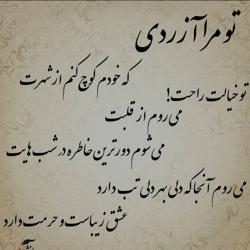 تو مرا آزردی
که خودم کوچ کنم از شهرت
تو خیالت راحت!
می روم از قلبت
می شوم دورترین خاطره در شب هایت
می روم آنجا که دلی بهر دلی تب دارد
عشق زیباست و حرمت دارد